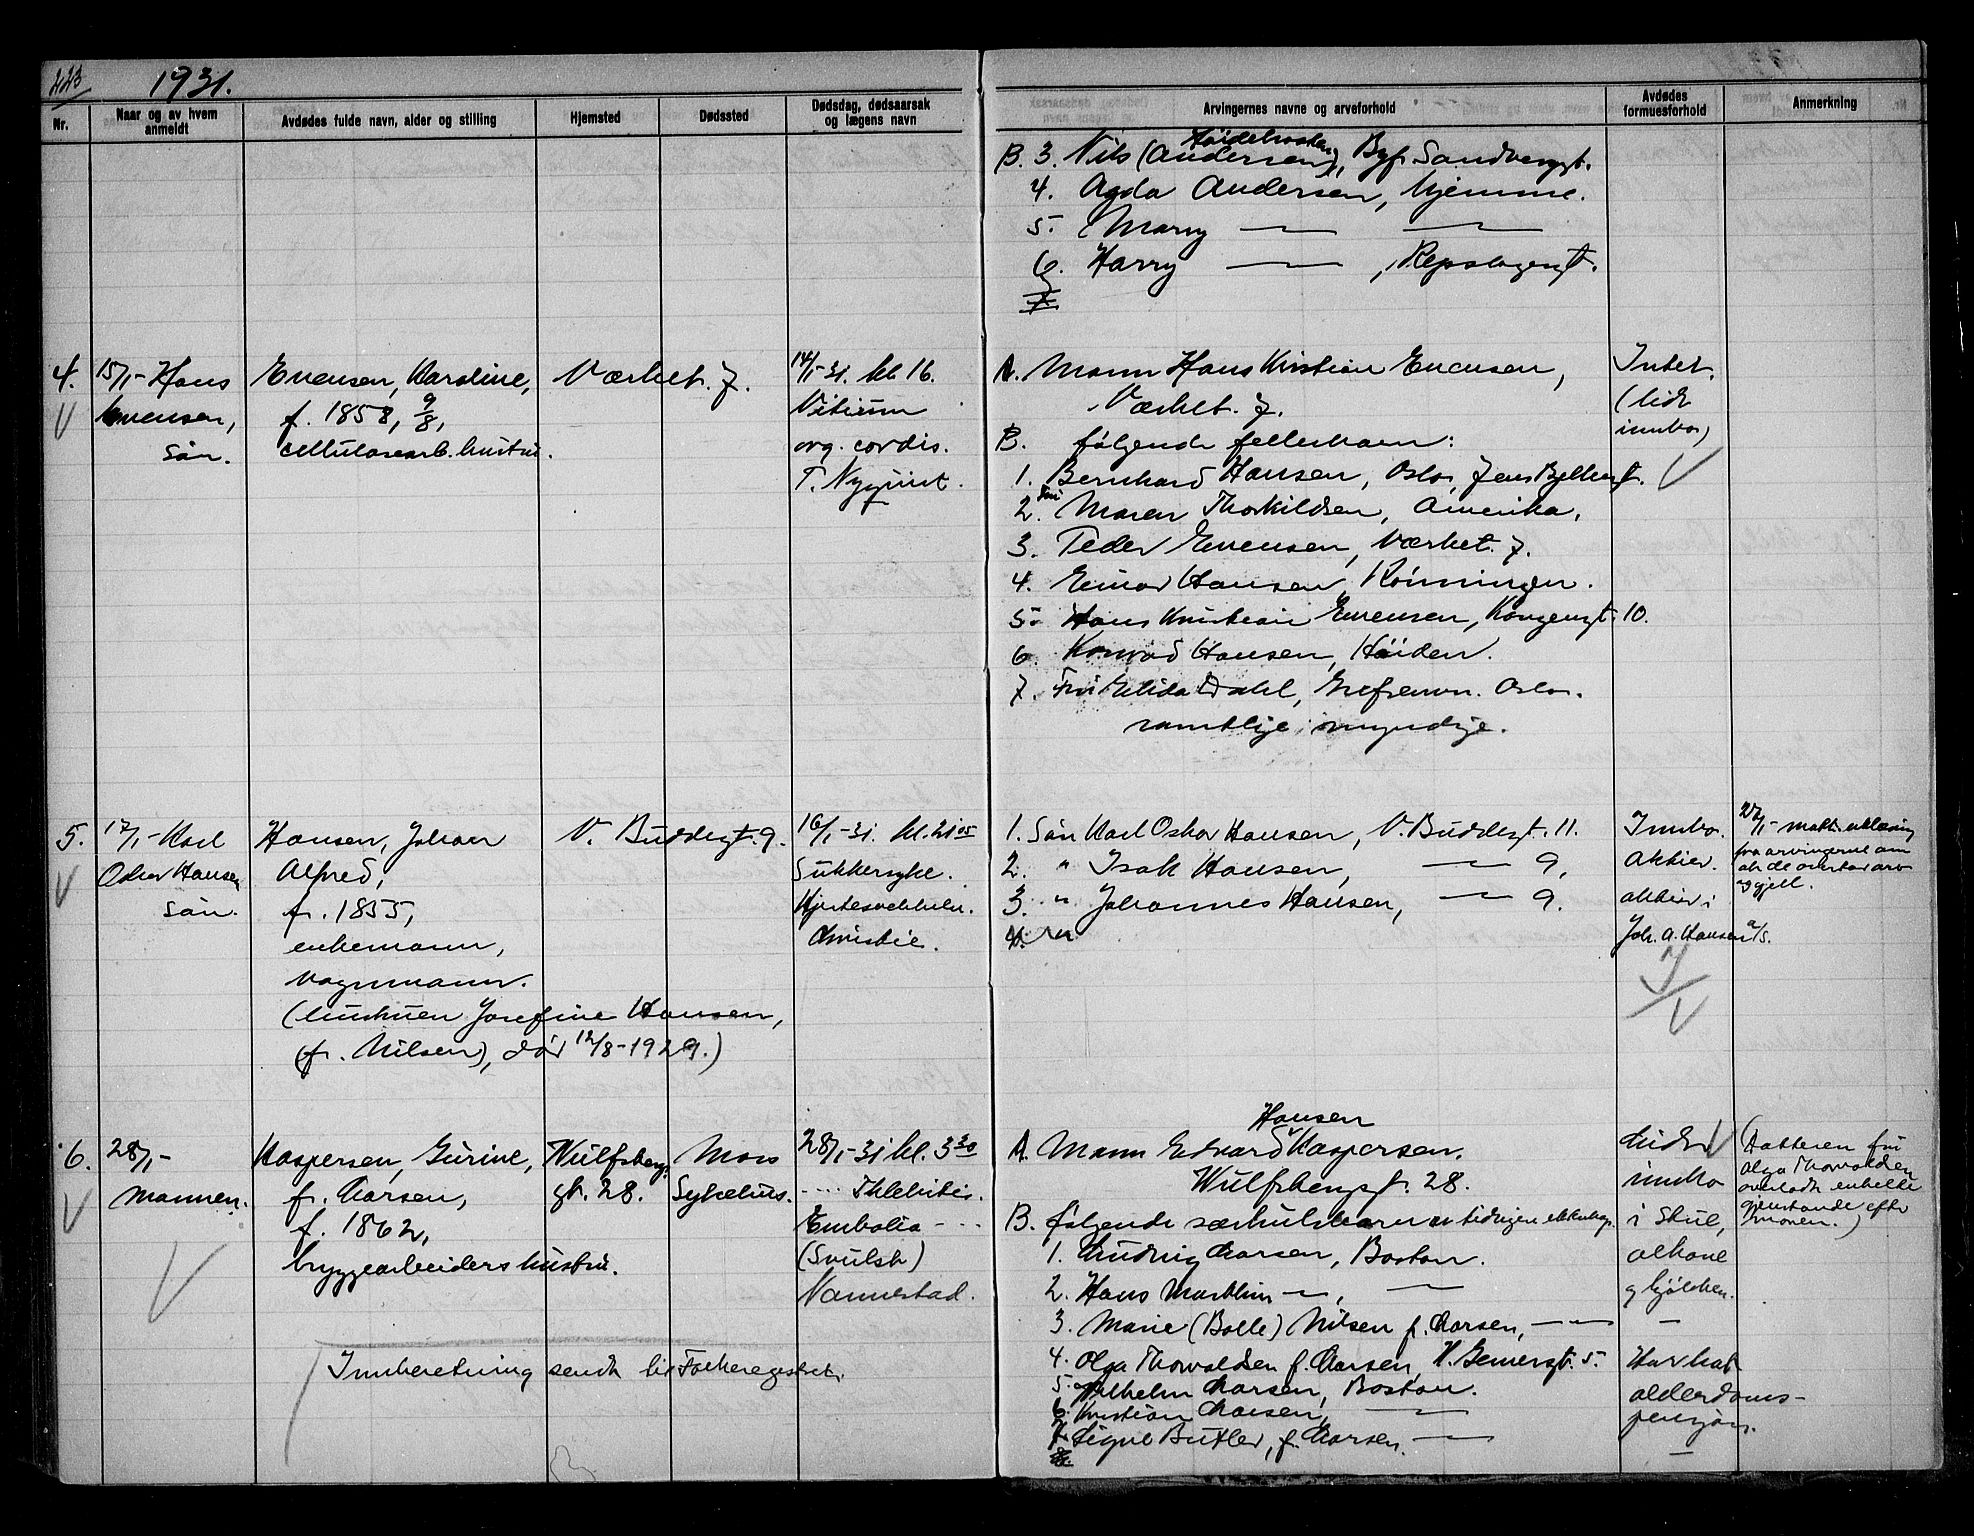 223
1931.
Nr.
Naar og av hvem anmeldt
Avdødes fulde navn, alder og stilling
Hjemsted
Dødssted
Dødsdag, dødsaarsak og lægens navn
Arvingernes navne og arveforhold
Avdødes formuesforhold
Anmerkning
B. 3. Nils (Andersen), Byf. Sandvergt.
4. Agda Andersen, hjemme.
5. Marry — —
6. Harry — , Repslagergt.
4.
15/1- Hans
Evensen,
sön.
Evensen, Karoline,
f. 1858, 9/8,
cellulosearb. hustru.
Værket. 7.
14/1-31. kl. 16.
Vitium
org. cordis.
T. Nyquist.
A. Mann Hans Kristian Evensen,
Værket. 7.
B. følgende fellesbarn:
1. Bernhard Hansen, Oslo, Jens Bjelkesgt.
2. Fru Maren Thorkildsen, Amerika.
3. Peder Evensen, Værket. 7.
4. Einar Hansen, Rönningen.
5. Hans Kristian Evensen, Kongensgt. 10.
6. Konrad Hansen, Höiden.
7. Fru Elida Dahl, Grefsenvn. Oslo.
samtlige myndige.
Intet.
(lidt
innbo)
5.
17/1- Karl
Oskar Hansen
sön.
Hansen, Johan
Alfred,
f. 1855,
enkemann,
vognmann.
(hustruen Josefine Hansen,
(f. Nilsen), död 12/8-1929.)
V. Buddegt. 9.
16/1-31. kl. 21 05
Sukkersyke.
Hjertesvekkelse.
Christie.
1. Sön Karl Oskar Hansen, V. Buddegt. 11.
2. " Isak Hansen, — 9.
3. " Johannes Hansen, — 9.
Innbo.
Aktier.
aktier i
Joh. A. Hansen A/S.
27/1- mott. erklæring
fra arvingerne om
at de overtar arv
og gjeld.
6.
28/1-
Mannen.
Kaspersen, Gurine,
f. Larsen,
f. 1862,
bryggearbeiders hustru.
Wulfsbergs
gt. 28.
Moss
Sykehus.
28/1-31 kl. 3 30
---- Flebitis.
Embolia ---
(Svulst)
Vannestad.
Hansen
A. Mann Edvard Kaspersen.
Wulfsbergsgt. 28.
B. følgende særkulsbarn av tidligere ekteskap.
1. Ludvig Larsen, Boston.
2. Hans Marthin — , —
3. Marie (Bolle) Nilsen f. Larsen, — —
4. Olga Thorvaldsen f. Larsen, H. Gernersgt. 5.
5. Wilhelm Larsen, Boston.
6. Kristian Larsen, —
7. Signe Butler, f. Larsen. —
Lidt
innbo
i stue,
alkove
og kjökken.
—
Har hat
alderdoms-
pensjon.
—
(Datteren fru
Olga Thorvaldsen
overlodt enkelte
gjenstande efter
moren.)
Innberetning sendt til Folkeregistret.